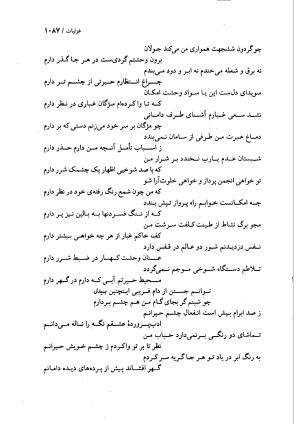 غزلیات / ۱۰۸۷
چو گردون ششجهت همواری من می‌کند جولان
برون وحشتم گردی‌ست در هر جا گذر دارم
نه برق و شعله می‌خندم نه ابر و دود می‌بندم
چراغ انتظارم حیرتی از چشم تر دارم
سویدای دل‌ست این یا سواد وحشت امکان
که تا واکرده‌ام مژگان غباری در نظر دارم
نشد سعی غبارم آشنای طرف دامانی
چو مژگان بر سر خود می‌زنم دستی که بر دارم
دماغ عبرت من طرفی از سامان نمی‌بندد
ز اسباب تأمل آنچه من دارم حذر دارم
شبستان عدم یارب نخندد بر شرار من
که با صد شوخی اظهار یک چشمک شرر دارم
تو خواهی انجمن پرداز و خواهی خلوت‌آرا شو
که من چون شمع رنگ رفته‌ی خود در نظر دارم
چه امکانست خوابم راه پرواز تپش بندد
که از سنگ فسردنها به بالین نیز پر دارم
مجو برگ نشاط از طینت کلفت سرشت من
کف خاکم غبار از هر چه خواهی بیشتر دارم
نفس دزدیدنم شور دو عالم در قفس دارد
عنان وحشت کهسار در ضبط شرر دارم
تلاطم دستگاه شوخی موجم نمی‌گردد
محیط حیرتم آبی که دارم در گهر دارم
توانم جستن از دام فریبی اینچنین بیدل
چو شبنم گر بجای گام من هم چشم بردارم
ز صد ابرام بیش است انفعال چشم حیرانم
ادب‌پروردهٔ عشقم نگه را ناله می‌دانم
تماشای دو رنگی برنمی‌دارد حباب من
نظر تا بر تو واکردم ز چشم خویش حیرانم
به رنگ ابر در یاد تو هر جا گریه سر کردم
گهر افشاند پیش از پرده‌های دیده دامانم